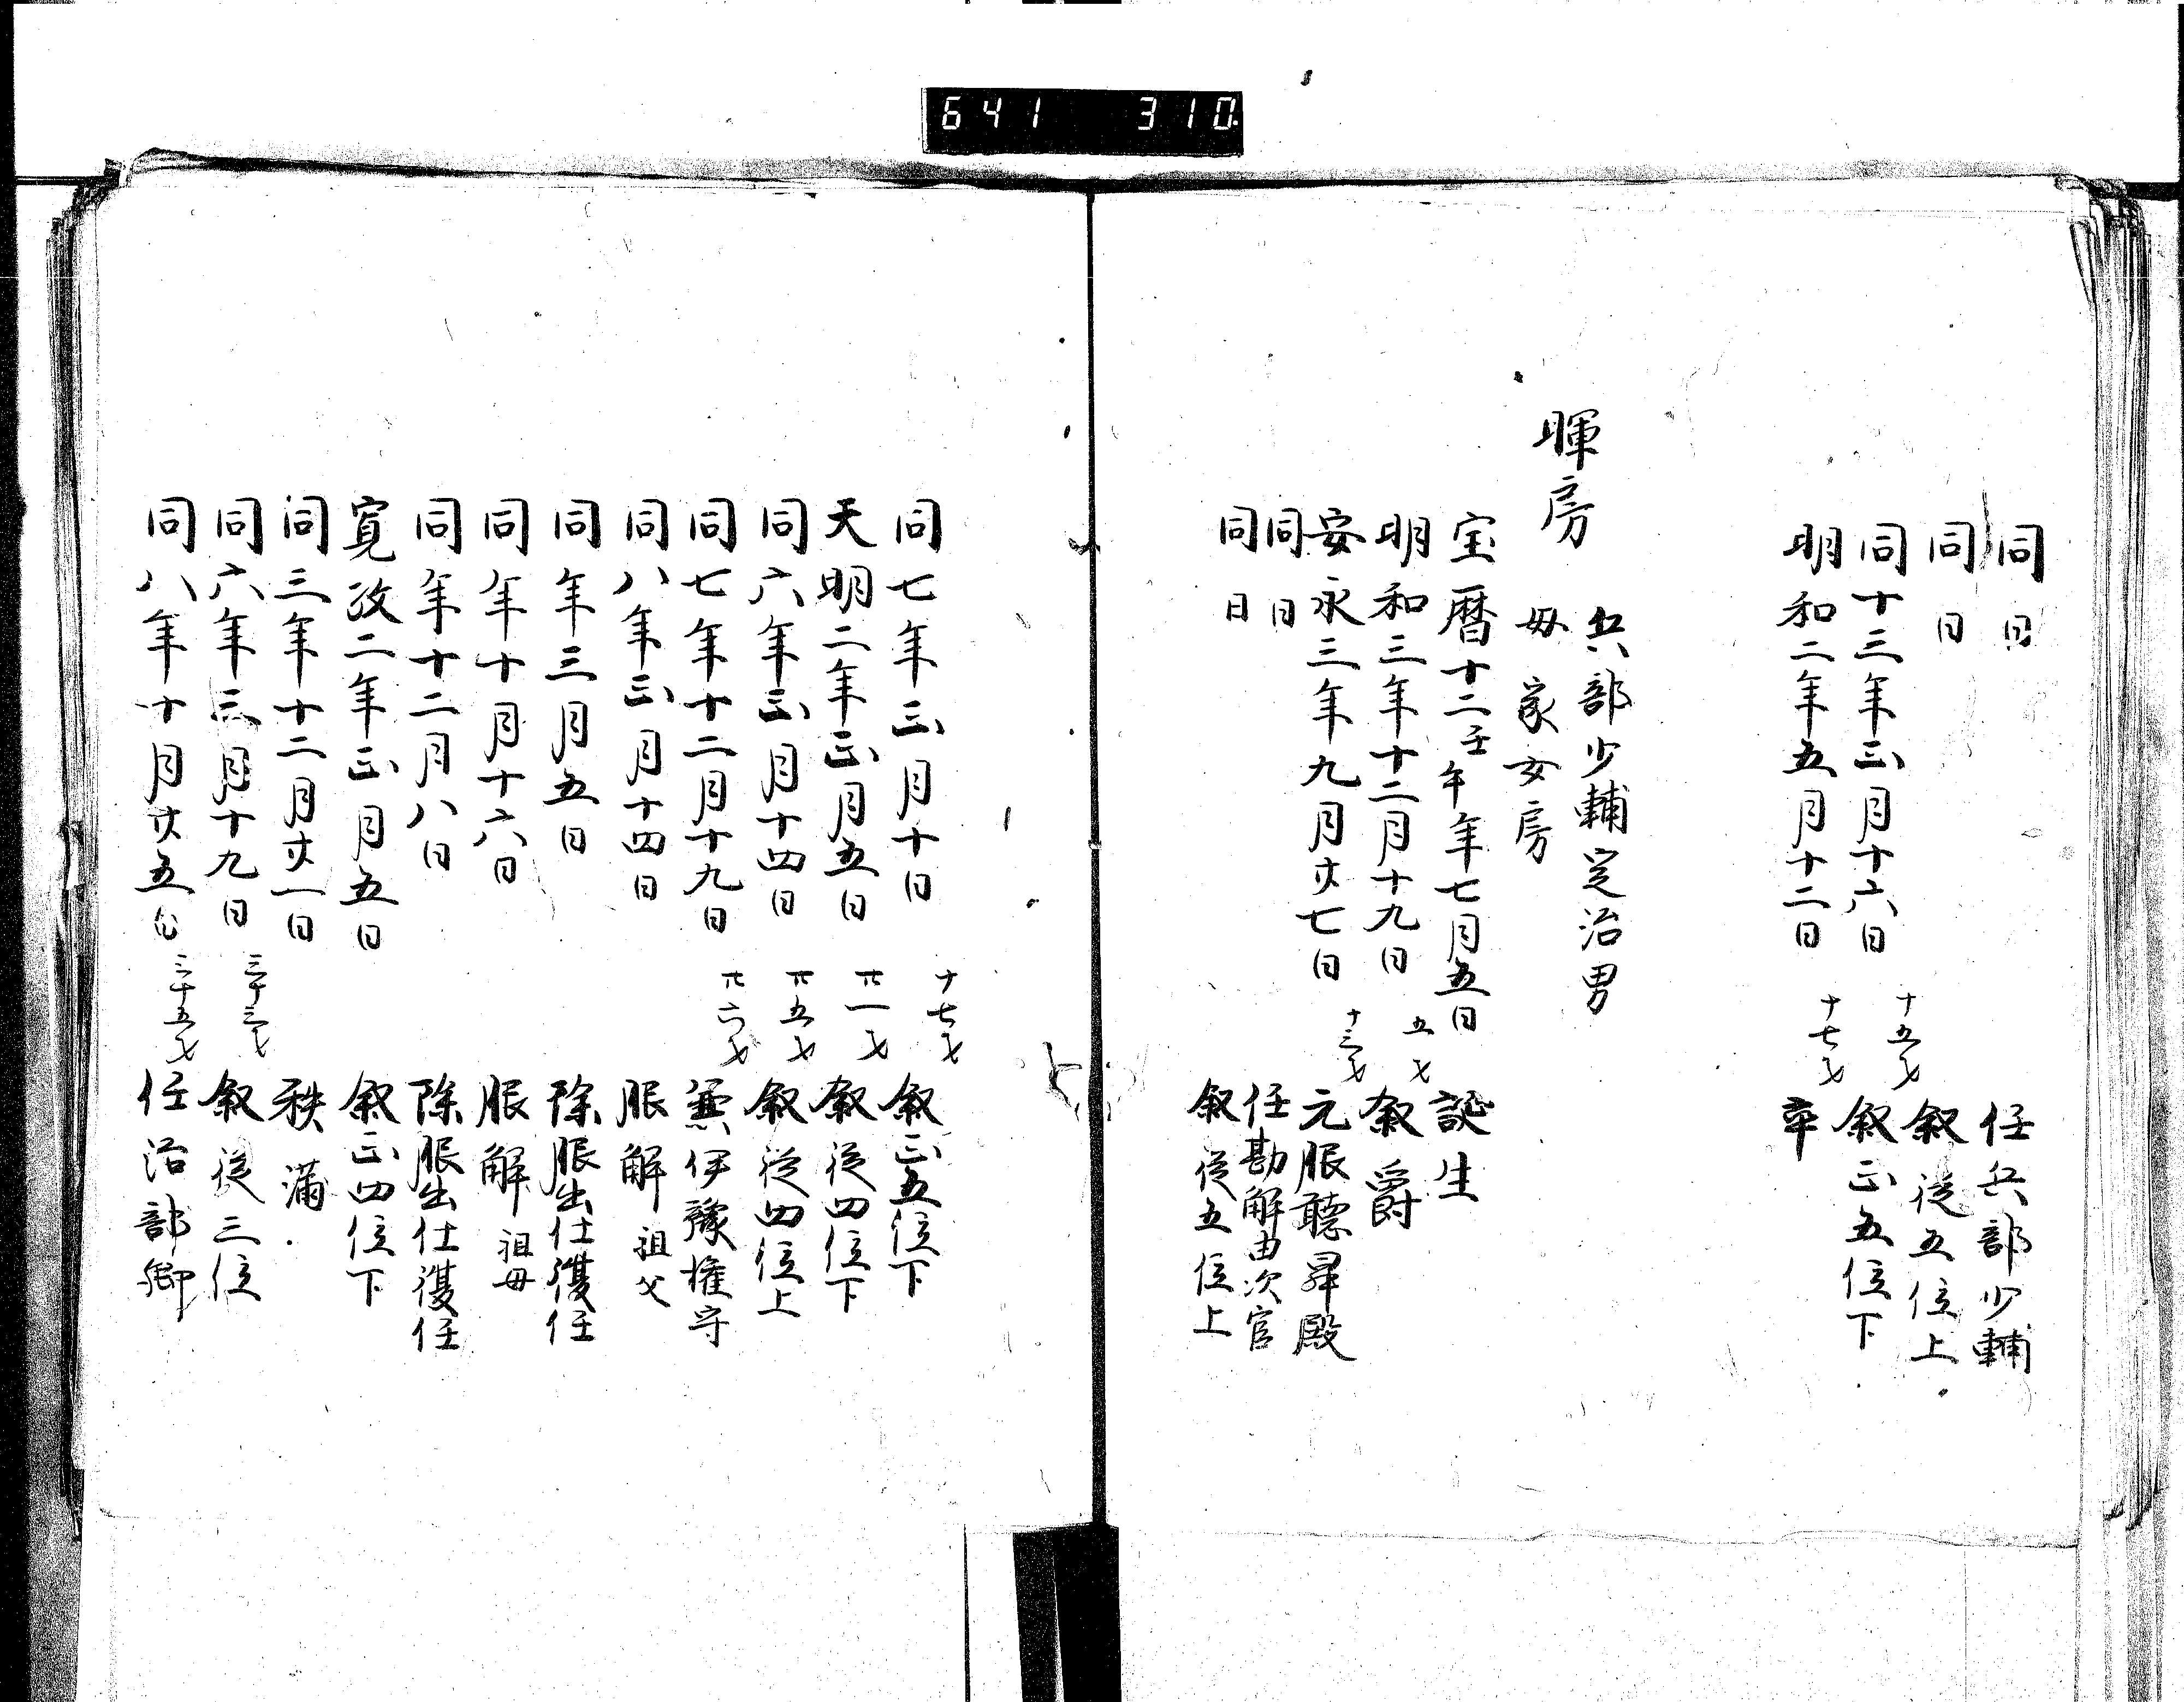 641 310
同日 任兵部少輔
同日 叙従五位上
同十三年正月十六日 十五才 叙正五位下
明和二年五月十二日 十七才 卒
暉房
兵部少輔定治男
母家女房
宝暦十二壬午年七月五日 誕生
明和三年十二月十九日 五才 叙爵
安永三年九月廿七日 十三才 元服聴昇殿
同日 任勘解由次官
同日 叙従五位上
同七年正月十日 十七才 叙正五位下
天明二年正月五日 廿一才 叙従四位下
同六年正月十四日 廿五才 叙従四位上
同七年十二月十九日 廿六才 兼伊豫権守
同八年正月十四日 服解祖父
同年三月五日 除服出仕復任
同年十月十六日 服解祖母
同年十二月八日 除服出仕復任
寛政二年正月五日 叙正四位下
同三年十二月廿一日 秩満
同六年三月十九日 三十三才 叙従三位
同八年十月廿五日 三十五才 任治部卿